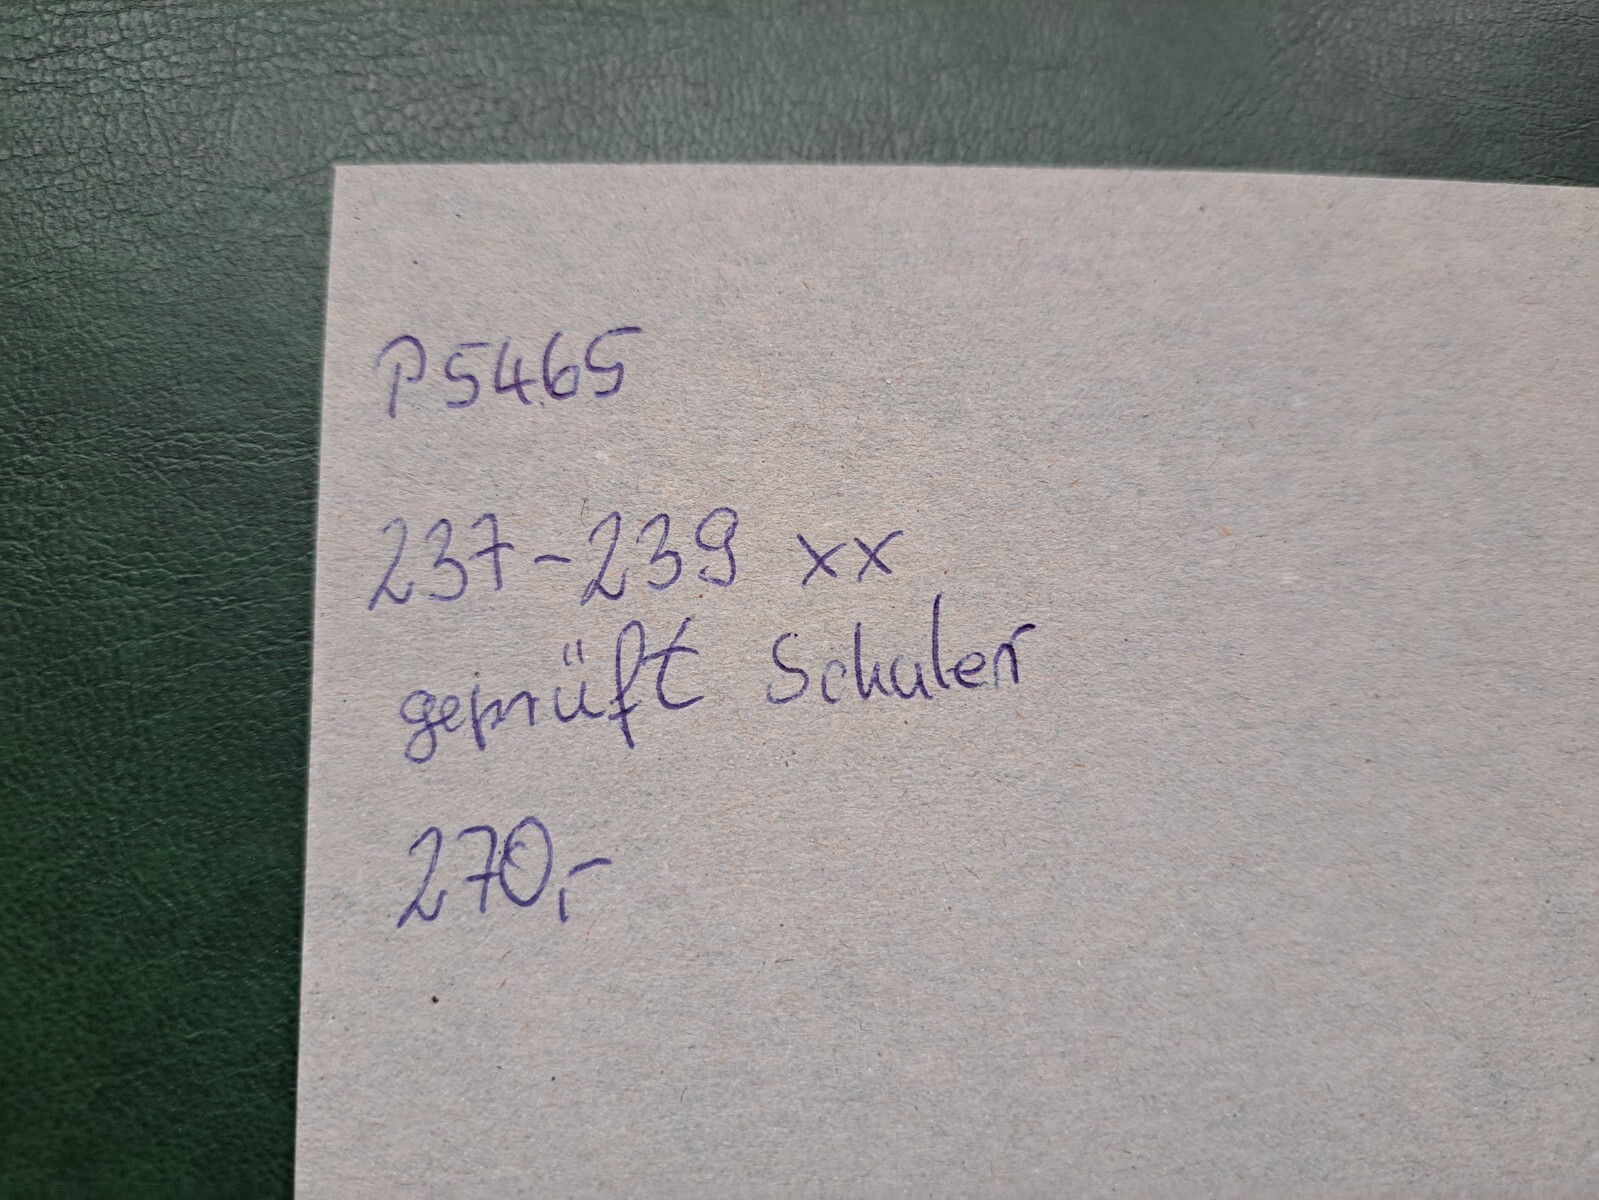 P5465
237-239 xx
geprüft Schuler
270,-